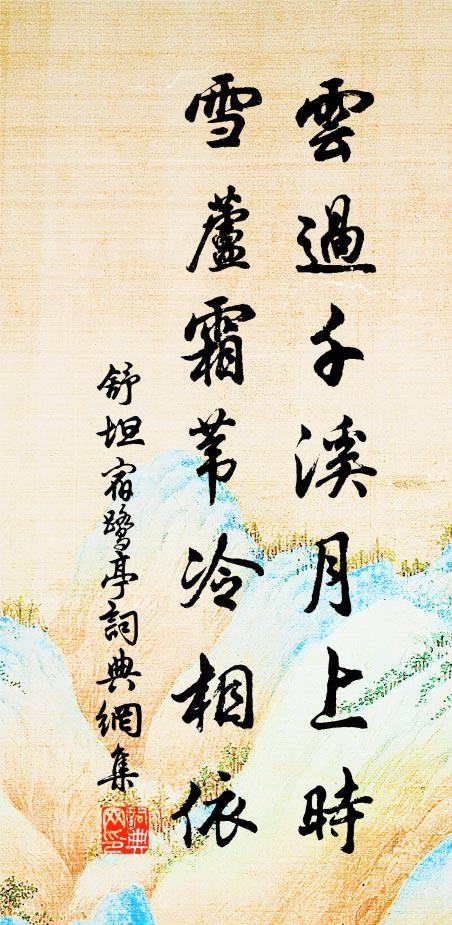 雲過千溪月上時
雪蘆霜葦冷相依
舒坦宿鷺亭詞典網集
詞典網印